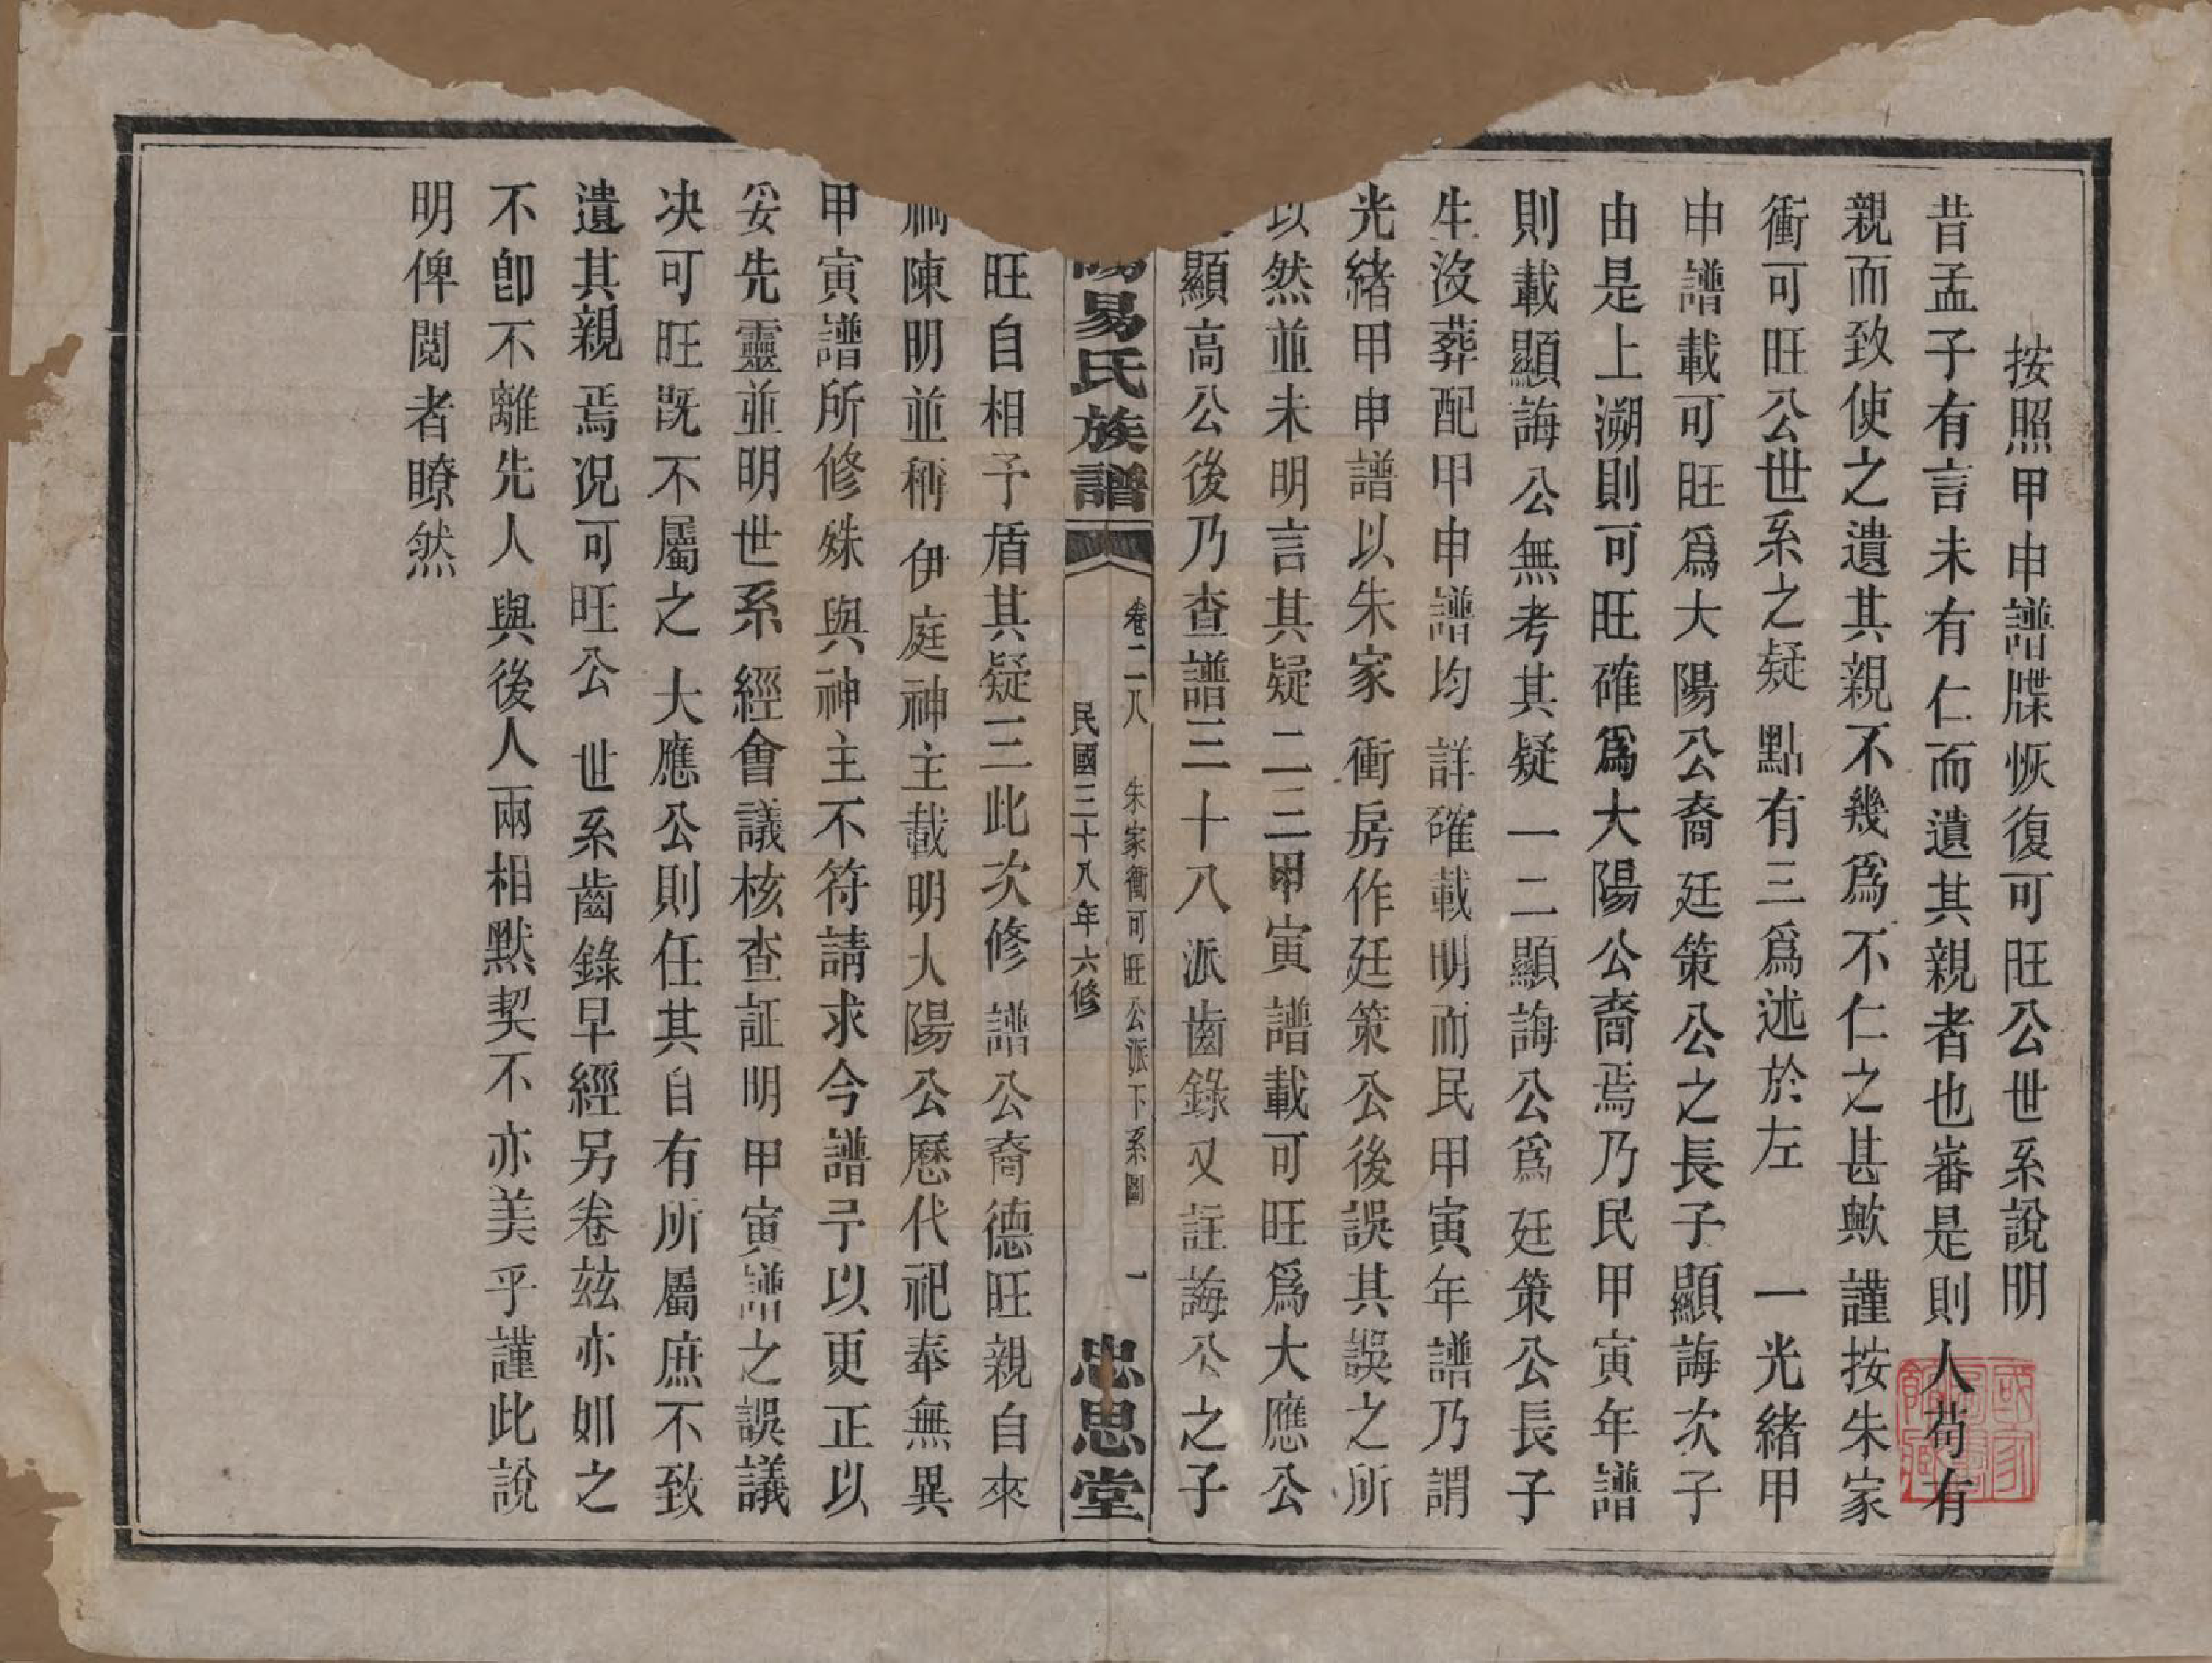 按照甲申譜牒恢復可旺公世系說明
昔孟子有言未有仁而遺其親者也審是則人苟有
親而致使之遺其親不幾爲不仁之甚歟謹按朱家
衝可旺公世系之疑點有三爲述於左　一光緒甲
申譜載可旺爲大陽公裔廷策公之長子顯誨次子
由是上溯則可旺確爲大陽公裔焉乃民甲寅年譜
則載顯誨公無考其疑一二顯誨公爲廷策公長子
生沒葬配甲申譜均詳確載明而民甲寅年譜乃謂
光緒甲申譜以朱家衝房作廷策公後誤其誤之所
以然並未明言其疑二三甲寅譜載可旺爲大應公
顯高公後乃查譜三十八派齒錄又註誨公之子
陽易氏族譜
卷二八　朱家衝可旺公派下系圖　一
民國三十八年六修
忠思堂
旺自相予盾其疑三此次修譜公裔德旺親自來
祠陳明並稱伊庭神主載明大陽公歷代祀奉無異
甲寅譜所修殊與神主不符請求今譜予以更正以
妥先靈並明世系經會議核查証明甲寅譜之誤議
决可旺既不屬之大應公則任其自有所屬庶不致
遺其親焉况可旺公世系齒錄早經另卷茲亦如之
不卽不離先人與後人兩相默契不亦美乎謹此說
明俾閱者瞭然